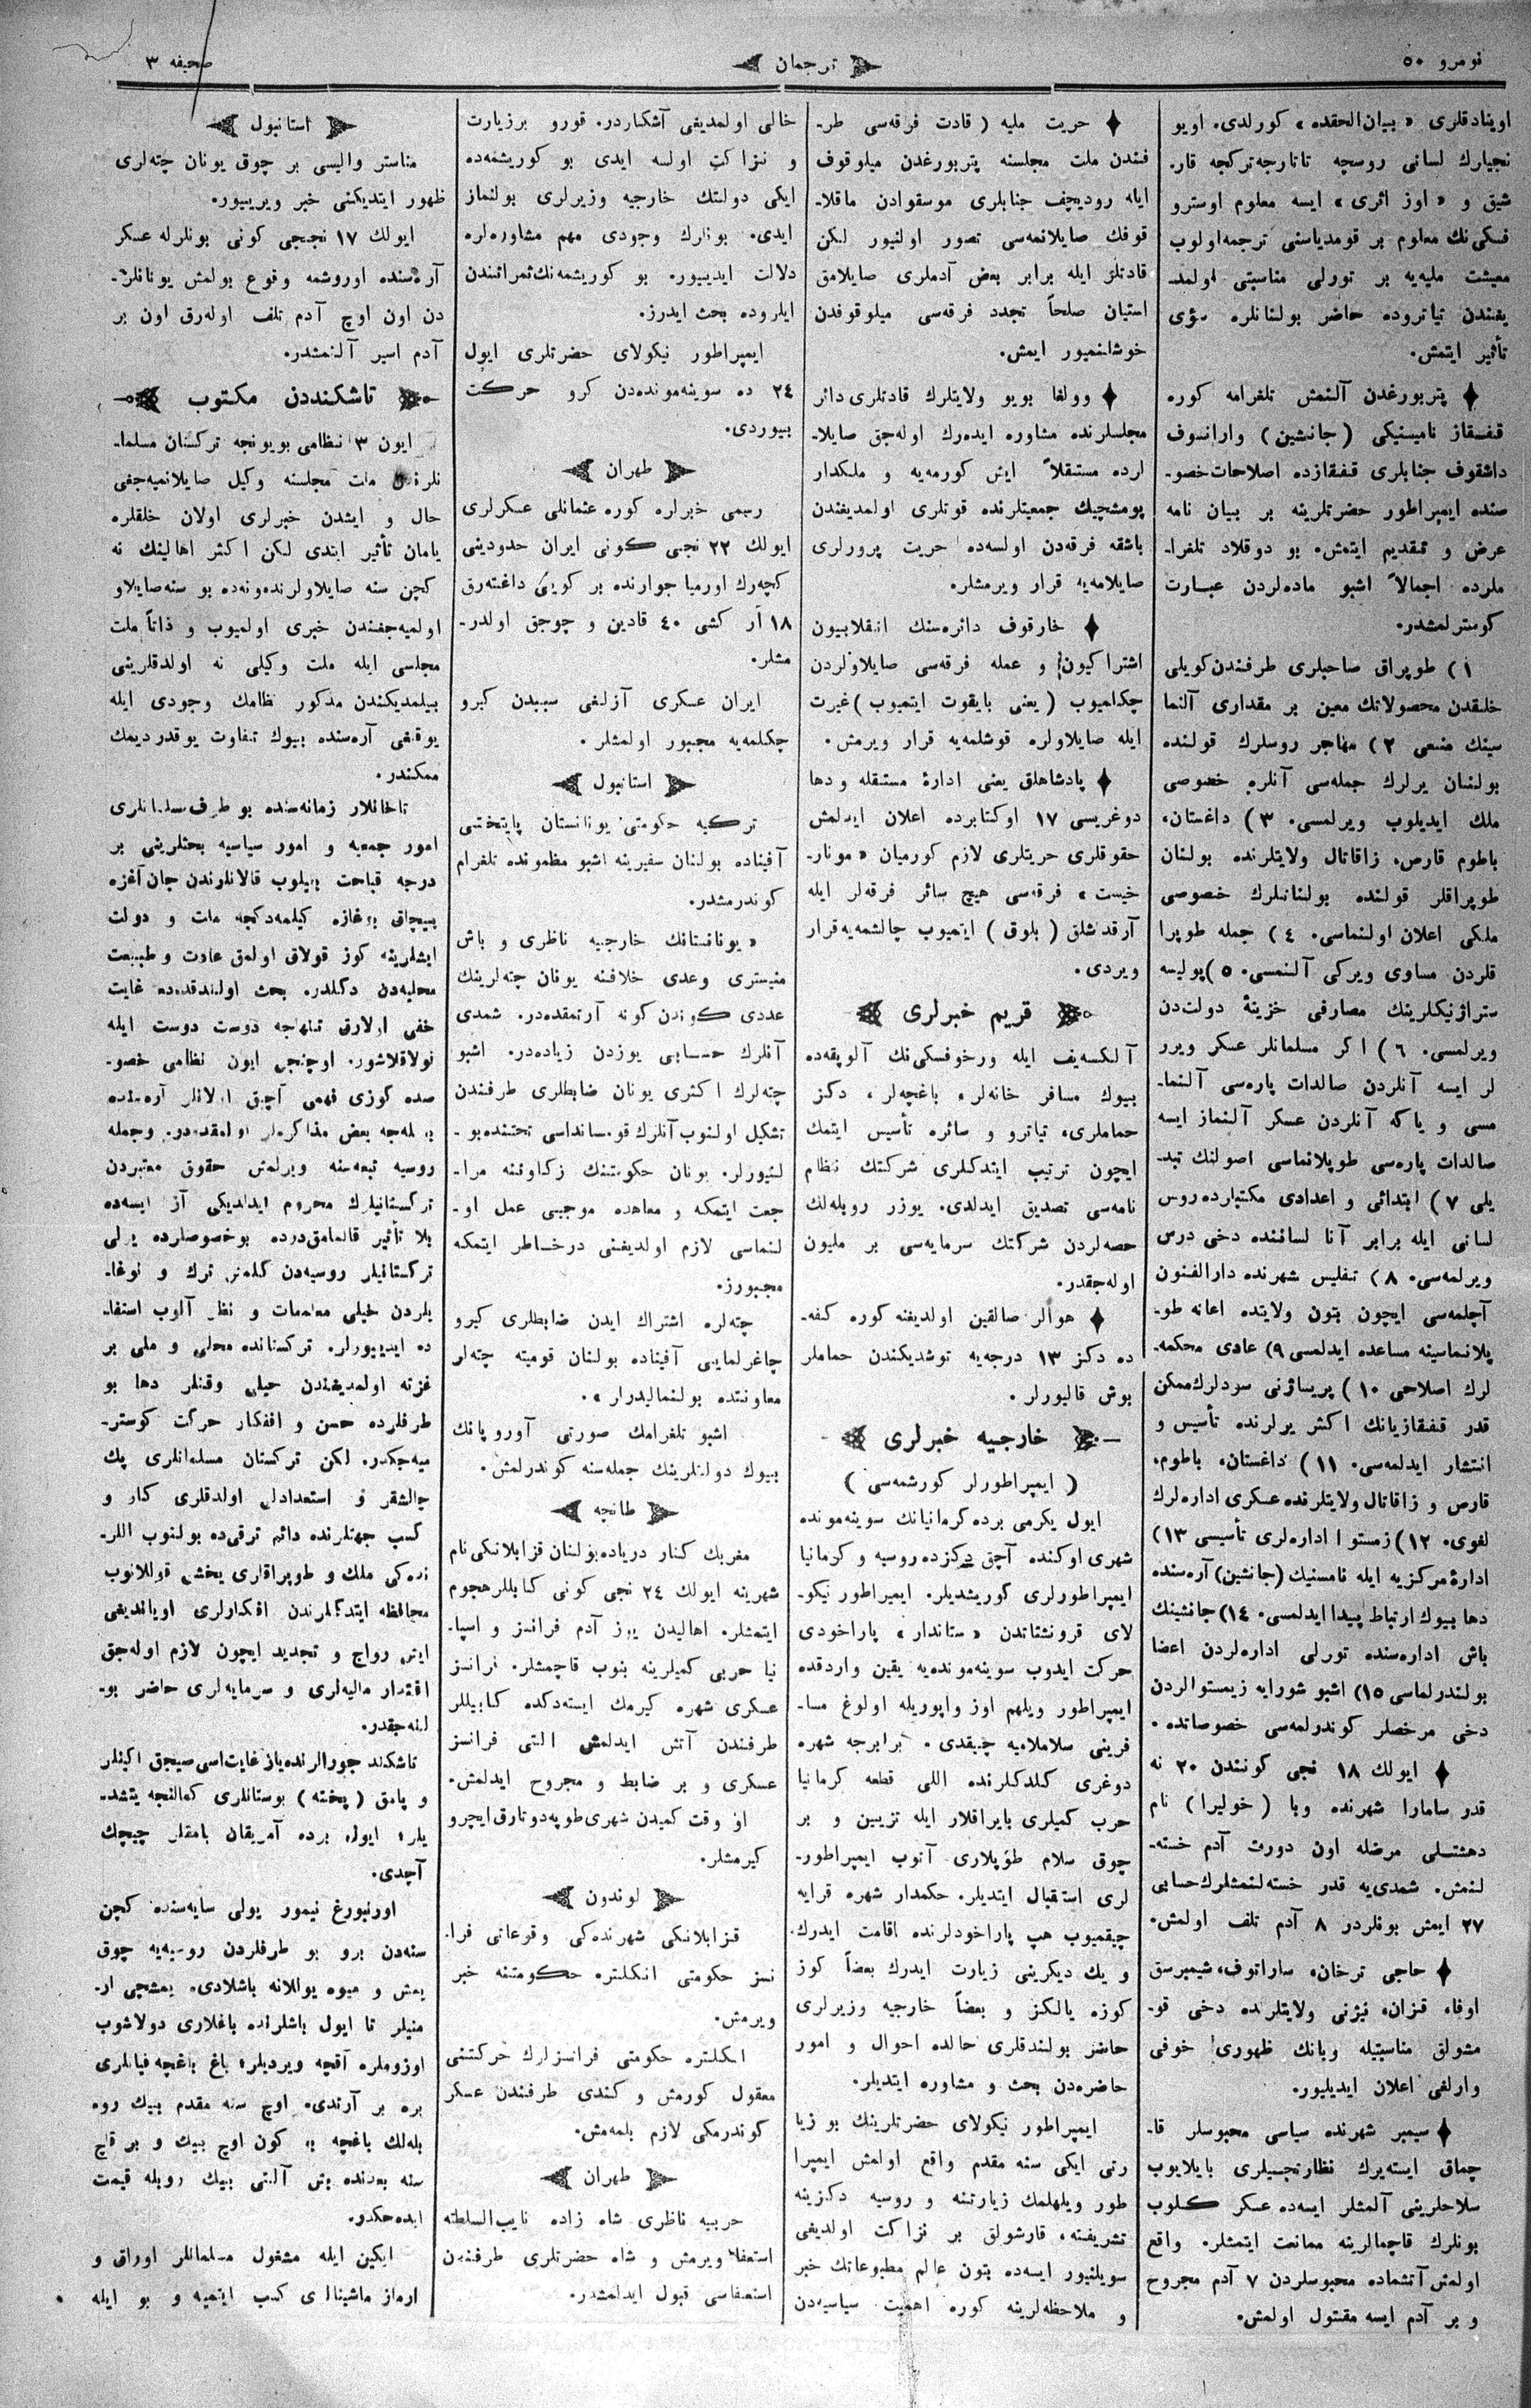 نومرو ٥٠
ترجمان
صحيفه ٣
اويناد‌قلرى « بيان‌الحقده » كورلدى. اويو
نجيلرك لسانى روسچه تاتارجه‌تركجه قار.
شيق و « اوز اثرى » ايسه معلوم اوسترو
فسكى‌نك معلوم بر قومدياسنى ترجمه‌اولوب
معيشت مليه‌يه بر تورلى مناسبتى اولمد-
يغندن تياتروده حاضر بولنانلره سؤى
تأثير ايتمش.
پتربورغدن آلنمش تلغرامه كوره
قفقاز ناميستنيكى (جانشين) وارانسوف
داشقوف جنابلرى قفقازده اصلاحات‌خصو-
صنده ايمپراطور حضرتلرينه بر بيان نامه
عرض و تقديم ايتمش. بو دوقلاد تلغرا-
ملرده اجمالاً اشبو ماده‌لردن عبارت
كوسترلمشدر.
١) طوپراق صاحبلرى طرفندن‌كويلى
خلقدن محصولاتك معين بر مقدارى آلنما
سينك منعى ٢) مهاجر روسلرك قولنده
بولنان يرلرك جمله‌سى آنلره خصوصى
ملك ايديلوب ويرلمسى. ٣) داغستان،
باطوم قارص، زاقاتال ولايتلرنده بولنان
طوپراقلر قولنده بولنانلرك خصوصى
ملكى اعلان اولنماسى. ٤) جمله طوپرا
قلردن مساوى ويركى آلنمسى. ٥)پوليسه
ستراژنيكلرينك مصارفى خزينهٔ دولت‌دن
ويرلمسى. ٦) اكر مسلمانلر عسكر ويرر
لر ايسه آنلردن صالدات پاره‌سى آلنما-
مسى و ياكه آنلردن عسكر آلنماز ايسه
صالدات پاره‌سى طوپلانماسى اصولنك تبد-
يلى ٧) ابتدائى و اعدادى مكتبلرده‌روس
لسانى ايله برابر آنا لساننده دخى درس
ويرلمه‌سى. ٨) تفليس شهرنده دارالفنون
آچلمه‌سى ايچون بتون ولايتده اعانه طو-
پلانماسينه مساعده ايدلمسى ٩) عادى محكمه-
لرك اصلاحى ١٠) پريساژنى سودلرك‌ممكن
قدر قفقازيانك اكثر يرلرنده تأسيس و
انتشار ايدلمه‌سى. ١١) داغستان، باطوم،
قارص و زاقاتال ولايتلرنده عسكرى اداره‌لرك
لغوى. ١٢)زمستوا اداره‌لرى تأسيسى ١٣)
ادارهٔ مركزيه ايله نامستنيك (جانشين) آره‌سنده
دها بيوك ارتباط پيدا ايدلمسى. ١٤) جانشينك
باش اداره‌سنده تورلى اداره‌لردن اعضا
بولندرلماسى ١٥) اشبو شورايه زيمستوالردن
دخى مرخصلر كوندرلمه‌سى خصوصاتده.
ايولك ١٨ نجى كونندن ٢٠ نه
قدر سامارا شهرنده وبا (خوليرا) نام
دهشتلى مرضله اون دورت آدم خسته-
لنمش. شمدى‌يه قدر خسته‌لنمشلرك‌حسابى
٢٧ ايمش بونلردن ٨ آدم تلف اولمش.
حاجى ترخان، ساراتوف، شيمبرسق
اوفا، قزان، نيژنى ولايتلرنده دخى قو-
مشولق مناسبتيله وبانك ظهورى خوفى
وارلغى اعلان ايديليور.
سيمبر شهرنده سياسى محبوسلر قا-
چماق ايسته‌يرك نظارتجيلرى بايلايوب
سلاحلرينى آلمشلر ايسه‌ده عسكر كلوب
بونلرك قاچمالرينه ممانعت ايتمشلر. واقع
اولمش آتشماده محبوسلردن ٧ آدم مجروح
و بر آدم ايسه مقتول اولمش.
حريت مليه (قادت فرقه‌سى طر-
فندن ملت مجلسنه پتربورغدن ميلوقوف
ايله روديچف جنابلرى موسقوادن ماقلا-
قوفك صايلانمه‌سى تصور اولنيور لكن
قادتلر ايله برابر بعض آدملرى صايلامق
استيان صلحاً تجدد فرقه‌سى ميلوقوفدن
خوشلنميور ايمش.
وولغا بويو ولايتلرك قادتلرى دائر
مجلسلرنده مشاوره ايده‌رك اوله‌جق صايلا-
لرده مستقلاً ايش كورمه‌يه و ملكدار
پومشچيك جمعيتلرنده قوتلرى اولمديغندن
باشقه فرقه‌دن اولسه‌ده حريت پرورلرى
صايلامه‌يه قرار ويرمشلر.
خارقوف دائره‌سنك انقلابيون
اشتراكيون و عمله فرقه‌سى صايلاولردن
چكلميوب (يعنى بايقوت ايتميوب) غيرت
ايله صايلاولره قوشلمه‌يه قرار ويرمش.
پادشاهلق يعنى ادارهٔ مستقله و دها
دوغريسى ١٧ اوكتابرده اعلان ايدلمش
حقوقلرى حريتلرى لازم كورميان «مونار-
خيست» فرقه‌سى هيچ سائر فرقه‌لر ايله
آرقد‌شلق (بلوق) ايتميوب چالشمه‌يه‌قرار
ويردى.
قريم خبرلرى
آلكسه‌يف ايله ورخوفسكى‌نك آلوپقه‌ده
بيوك مسافر خانه‌لر، باغچه‌لر، دكز
حماملرى، تياترو و سائره تأسيس ايتمك
ايچون ترتيب ايتدكلرى شركتك نظام
نامه‌سى تصديق ايدلدى. يوزر روبله‌لك
حصه‌لردن شركتك سرمايه‌سى بر مليون
اوله‌جقدر.
هوالر صالقين اولديغنه كوره كفه-
ده دكز ١٣ درجه‌يه توشديكندن حماملر
بوش قاليورلر.
خارجيه خبرلرى
(ايمپراطورلر كورشمه‌سى)
ايول يكرمى برده كرمانيانك سوينه‌مونده
شهرى اوكنده آچق دكزده روسيه و كرمانيا
ايمپراطورلرى كوريشديلر. ايمپراطور نيكو-
لاى قرونشتاتدن «ستاندار» پاراخودى
حركت ايدوب سوينه‌مونده‌يه يقين واردقده
ايمپراطور ويلهم اوز واپوريله اولوغ مسا-
فرينى سلاملاميه چيقدى. برابرجه شهره
دوغرى كلدكلرنده اللى قطعه كرمانيا
حرب كميلرى بايراقلار ايله تزيين و بر
چوق سلام طوپلارى آتوب ايمپراطور-
لرى استقبال ايتديلر. حكمدار شهره قرايه
چيقميوب هپ پاراخودلرنده اقامت ايدرك
و يك ديكرينى زيارت ايدرك بعضاً كوز
كوزه يالكز و بعضاً خارجيه وزيرلرى
حاضر بولندقلرى حالده احوال و امور
حاضره‌دن بحث و مشاوره ايتديلر.
ايمپراطور نيكولاى حضرتلرينك بو زيا
رتى ايكى سنه مقدم واقع اولمش ايمپرا
طور ويلهلمك زيارتنه و روسيه دكزينه
تشريفنه، قارشولق بر نزاكت اولديغى
سويلنيور ايسه‌ده بتون عالم مطبوعاتك خبر
و ملاحظه‌لرينه كوره اهميت سياسيه‌دن
خالى اولمديغى آشكاردر. قورو برزيارت
و نزاكت اولسه ايدى بو كوريشمه‌ده
ايكى دولتك خارجيه وزيرلرى بولنماز
ايدى. بونلرك وجودى مهم مشاوره‌لره
دلالت ايدييور. بو كوريشمه‌نك‌ثمراتندن
ايلروده بحث ايدرز.
ايمپراطور نيكولاى حضرتلرى ايول
٢٤ ده سوينه‌مونده‌دن كرو حركت
بيوردى.
طهران
رسمى خبرلره كوره عثمانلى عسكرلرى
ايولك ٢٢ نجى كونى ايران حدودينى
كچه‌رك اورميا جوارنده بر كويى داغته‌رق
١٨ ار كشى ٤٠ قادين و چوجق اولدر-
مشلر.
ايران عسكرى آزلغى سببدن كيرو
چكلمه‌يه مجبور اولمشلر.
استانبول
تركيه حكومتى يونانستان پايتختى
آفيناده بولنان سفيرينه اشبو مظمونده تلغرام
كوندرمشدر.
« يونانستانك خارجيه ناظرى و باش
منيسترى وعدى خلافنه يونان چته‌لرينك
عددى كوندن كونه آرتمقده‌در. شمدى
آنلرك حسابى يوزدن زياده‌در. اشبو
چته‌لرك اكثرى يونان ضابطلرى طرفندن
تشكيل اولنوب آنلرك قومسانداسى تحتنده‌بو-
لنيورلر. يونان حكومتنك زكاوتنه مرا-
جعت ايتمكه و معاهده موجبى عمل او-
لنماسى لازم اولديغنى درخاطر ايتمكه
مجبورز.
چته‌لره اشتراك ايدن ضابطلرى كيرو
چاغرلمايى آفيناده بولنان قوميته چته‌لر
معاونتده بولنماليدرلر ».
اشبو تلغرامك صورتى آوروپانك
بيوك دولتلرينك جمله‌سنه كوندرلمش.
طانجه
مغربك كنار درياده‌بولنان قزابلانكى‌نام
شهرينه ايولك ٢٤ نجى كونى كابللر‌هجوم
ايتمشلر. اهاليدن يوز آدم فرانسز و اسپا-
نيا حربى كميلرينه بنوب قاچمشلر. فرانسز
عسكرى شهره كيرمك ايسته‌دكده كابيللر
طرفندن آتش ايدلمش التى فرانسز
عسكرى و بر ضابط و مجروح ايدلمش.
او وقت كميدن شهرى‌طوپه‌دوتارق‌ايچرو
كيرمشلر.
لوندون
قزابلانكى شهرنده‌كى وقوعاتى فرا-
نسز حكومتى انكلتره حكومتنه خبر
ويرمش.
انكلتره حكومتى فرانسزلرك حركتنى
معقول كورمش و كندى طرفندن عسكر
كوندرمكى لازم بلمه‌مش.
طهران
حربيه ناظرى شاه زاده نايب‌السلطنه
استعفا ويرمش و شاه حضرتلرى طرفندن
استعفاسى قبول ايدلمشدر.
استانبول
مناستر واليسى بر چوق يونان چته‌لرى
ظهور ايتديكنى خبر ويرييور.
ايولك ١٧ نجىجى كونى بونلرله عسكر
آره‌سنده اوروشمه وقوع بولمش يونانلر-
دن اون اوچ آدم تلف اوله‌رق اون بر
آدم اسير آلنمشدر.
تاشكنددن مكتوب
ايون ٣ نظامى بويونجه تركستان مسلما-
نلرندن ملت مجلسنه وكيل صايلانميه‌جغى
حال و ايشدن خبرلرى اولان خلقلره
يامان تأثير ايتدى لكن اكثر اهالينك نه
كچن سنه صايلاولرنده‌ونه‌ده بو سنه‌صايلاو
اولميه‌جغندن خبرى اولميوب و ذاتاً ملت
مجلسى ايله ملت وكيلى نه اولدقلرينى
بيلمديكندن مذكور نظامك وجودى ايله
يوقلغى آره‌سنده بيوك تفاوت يوقدر‌ديمك
ممكندر.
زمانه‌سنده بو طرف مسلمانلرى
امور جمعيه و امور سياسيه بحثلرينى بر
درجه قباحت بيلوب قالانلرندن جان آغزه
بيچاق بوغازه كيلمه‌دكجه ملت و دولت
ايشلرينه كوز قولاق اولمق عادت و طبيعت
محليه‌دن دكلدر. بحث اولندقده‌ده غايت
خفى اولارق تنهاجه دوست دوست ايله
قولاقلاشور. اوچنجى ايون نظامى خصو-
صده كوزى فهمى آچيق اولانلر آره‌سنده
بعض مذاكره‌لر اولمقده‌در. وجمله
روسيه تبعه‌سنه ويرلمش حقوق معتبردن
تركستانيلرك محروم ايدلديكى آز ايسه‌ده
بلا تأثير قالمامق‌درده بوخصوصلرده يرلى
تركستانيلر روسيه‌دن كلمش ترك و نوغا-
يلردن خيلى معلومات و نظر آلوب استفا-
ده ايدييورلر. تركستانده محلى و ملى بر
غزته اولمديغندن خيلى وقتلر دها بو
طرفلرده حسن و افكار حركت كوستر-
ميه‌جكدر. لكن تركستان مسلمانلرى پك
چالشقر و استعدادلى اولدقلرى كار و
كسب جهتلرنده دائم ترقى‌ده بولنوب اللر-
نده‌كى ملك و طوپراقلرى يخشى قوللانوب
محافظه ايتدكلرندن افكارلرى اوياند‌يغى
ايتى رواج و تجديد ايچون لازم اوله‌جق
اقتدار ماليه‌لرى و سرمايه‌لرى حاضر بو-
لنه‌جقدر.
تاشكند جورالرنده‌ياز غايت‌اسى‌صيجق اكينلر
و پامق (پخته) بوستانلرى كمالنجه يتشد-
يلر، ايول برده آمريقان پامقلر چيچك
آچدى.
اورنبورغ تيمور يولى سايه‌سنده كچن
سنه‌دن برو بو طرفلردن روسيه‌يه چوق
يمش و ميوه يوللانه باشلادى. يمشچى ار-
منيلر تا ايول باشلرنده باغلارى دولاشوب
اوزوملره آقچه ويرديلر، باغ باغچه فيأتلرى
بره بر آرتدى. اوچ سنه مقدم بيك روه
بله‌لك باغچه بو كون اوچ بيك و بر قاچ
سنه بعدنده بش آلتى بيك روبله قيمت
ايده‌جكدر.
ايكين ايله مشغول مسلمانلر اوراق و
ارماز ماشينالرى كسب ايتميه و بو ايله